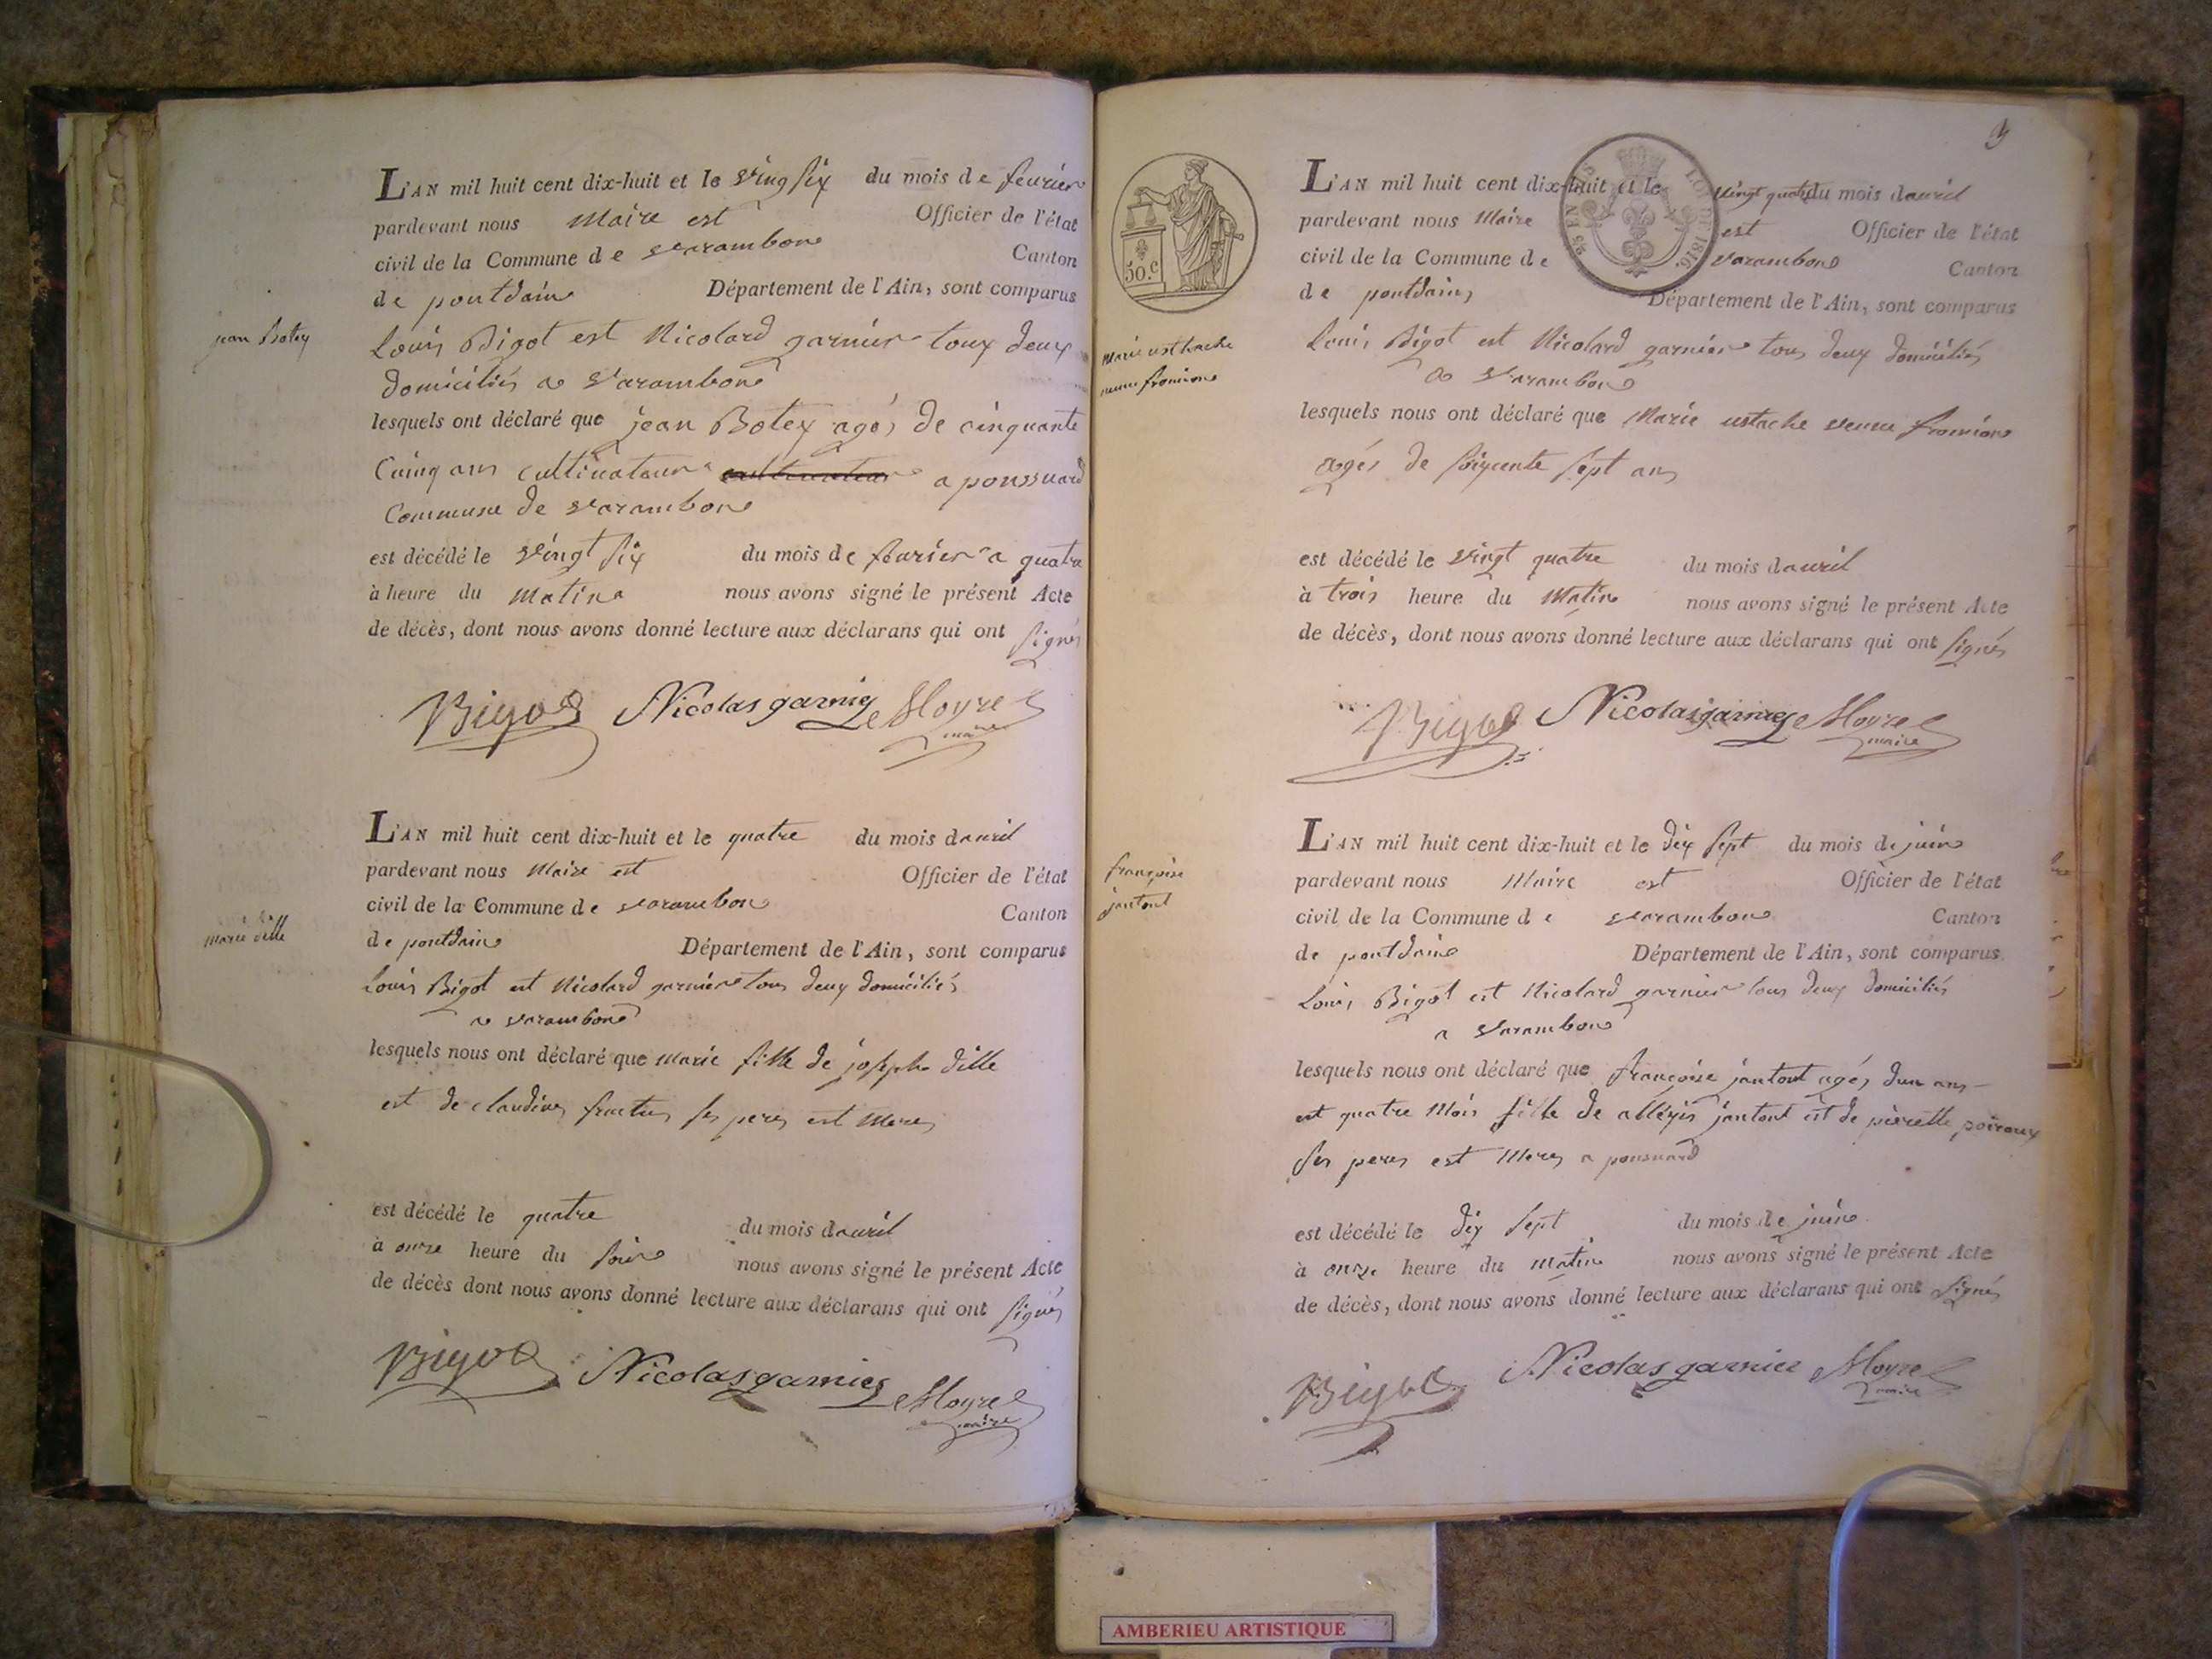 L'AN mil huit cent dix-huit et le vingt six du mois de feurier
pardevant nous Maire est Officier de l'état
civil de la Commune de varambon Canton
de pontdain Département de l'Ain, sont comparus
jean Botex
Louis Bigot est Nicolard garnier toux deux
domiciliés a Varambon
lesquels ont déclaré que jean Botex agés de cinquante
Cainq ans cultivateur cultivateur a poussuard
Commune de varambon
est décédé le vingt six du mois de feurier a quatre
à heure du matin nous avons signé le présent Acte
de décès, dont nous avons donné lecture aux déclarans qui ont signés
Bigot Nicolas garnier Moyret
maire
L'AN mil huit cent dix-huit et le quatre du mois dauril
pardevant nous Maire est Officier de l'état
civil de la Commune de varambon Canton
marie dille
de pontdain Département de l'Ain, sont comparus
Louis Bigot est Nicolard garnier tous deux domiciliés
a varambon
lesquels nous ont déclaré que marie fille de joseph dille
est de claudine ses peres est Meres
est décédé le quatre du mois dauril
à onze heure du soir nous avons signé le présent Acte
de décès dont nous avons donné lecture aux déclarans qui ont signés
Bigot Nicolas garnier Moyret
maire
50.c
L'AN mil huit cent dix-huit et le vingt quatre du mois dauril
pardevant nous Maire est Officier de l'état
civil de la Commune de varambon Canton
de pontdain Département de l'Ain, sont comparus
LOI DE 1816
Marie ustache
veuve fromion
Louis Bigot est Nicolard garnier tous deux domiciliés
a Varambon
lesquels nous ont déclaré que Marie ustache veuve fromion
agés de soixcente sept ans
est décédé le vingt quatre du mois dauril
à trois heure du Matin nous avons signé le présent Acte
de décès, dont nous avons donné lecture aux déclarans qui ont signés
Bigot Nicolas garnier Moyret
maire
L'AN mil huit cent dix-huit et le dix sept du mois de juin
françoise
jantont
pardevant nous Maire est Officier de l'état
civil de la Commune de varambon Canton
de pontdain Département de l'Ain, sont comparus.
Louis Bigot est Nicolard garnier tous deux domiciliés
a Varambon
lesquels nous ont déclaré que françoise jantont agés dun ans
est quatre Mois fille de alléxis jantont est de pierette poiroux
ses peres est Meres a poussuard
est décédé le dix sept du mois de juin
à onze heure du matin nous avons signé le présent Acte
de décès, dont nous avons donné lecture aux déclarans qui ont signés
Bigot Nicolas garnier Moyret
maire
AMBERIEU ARTISTIQUE